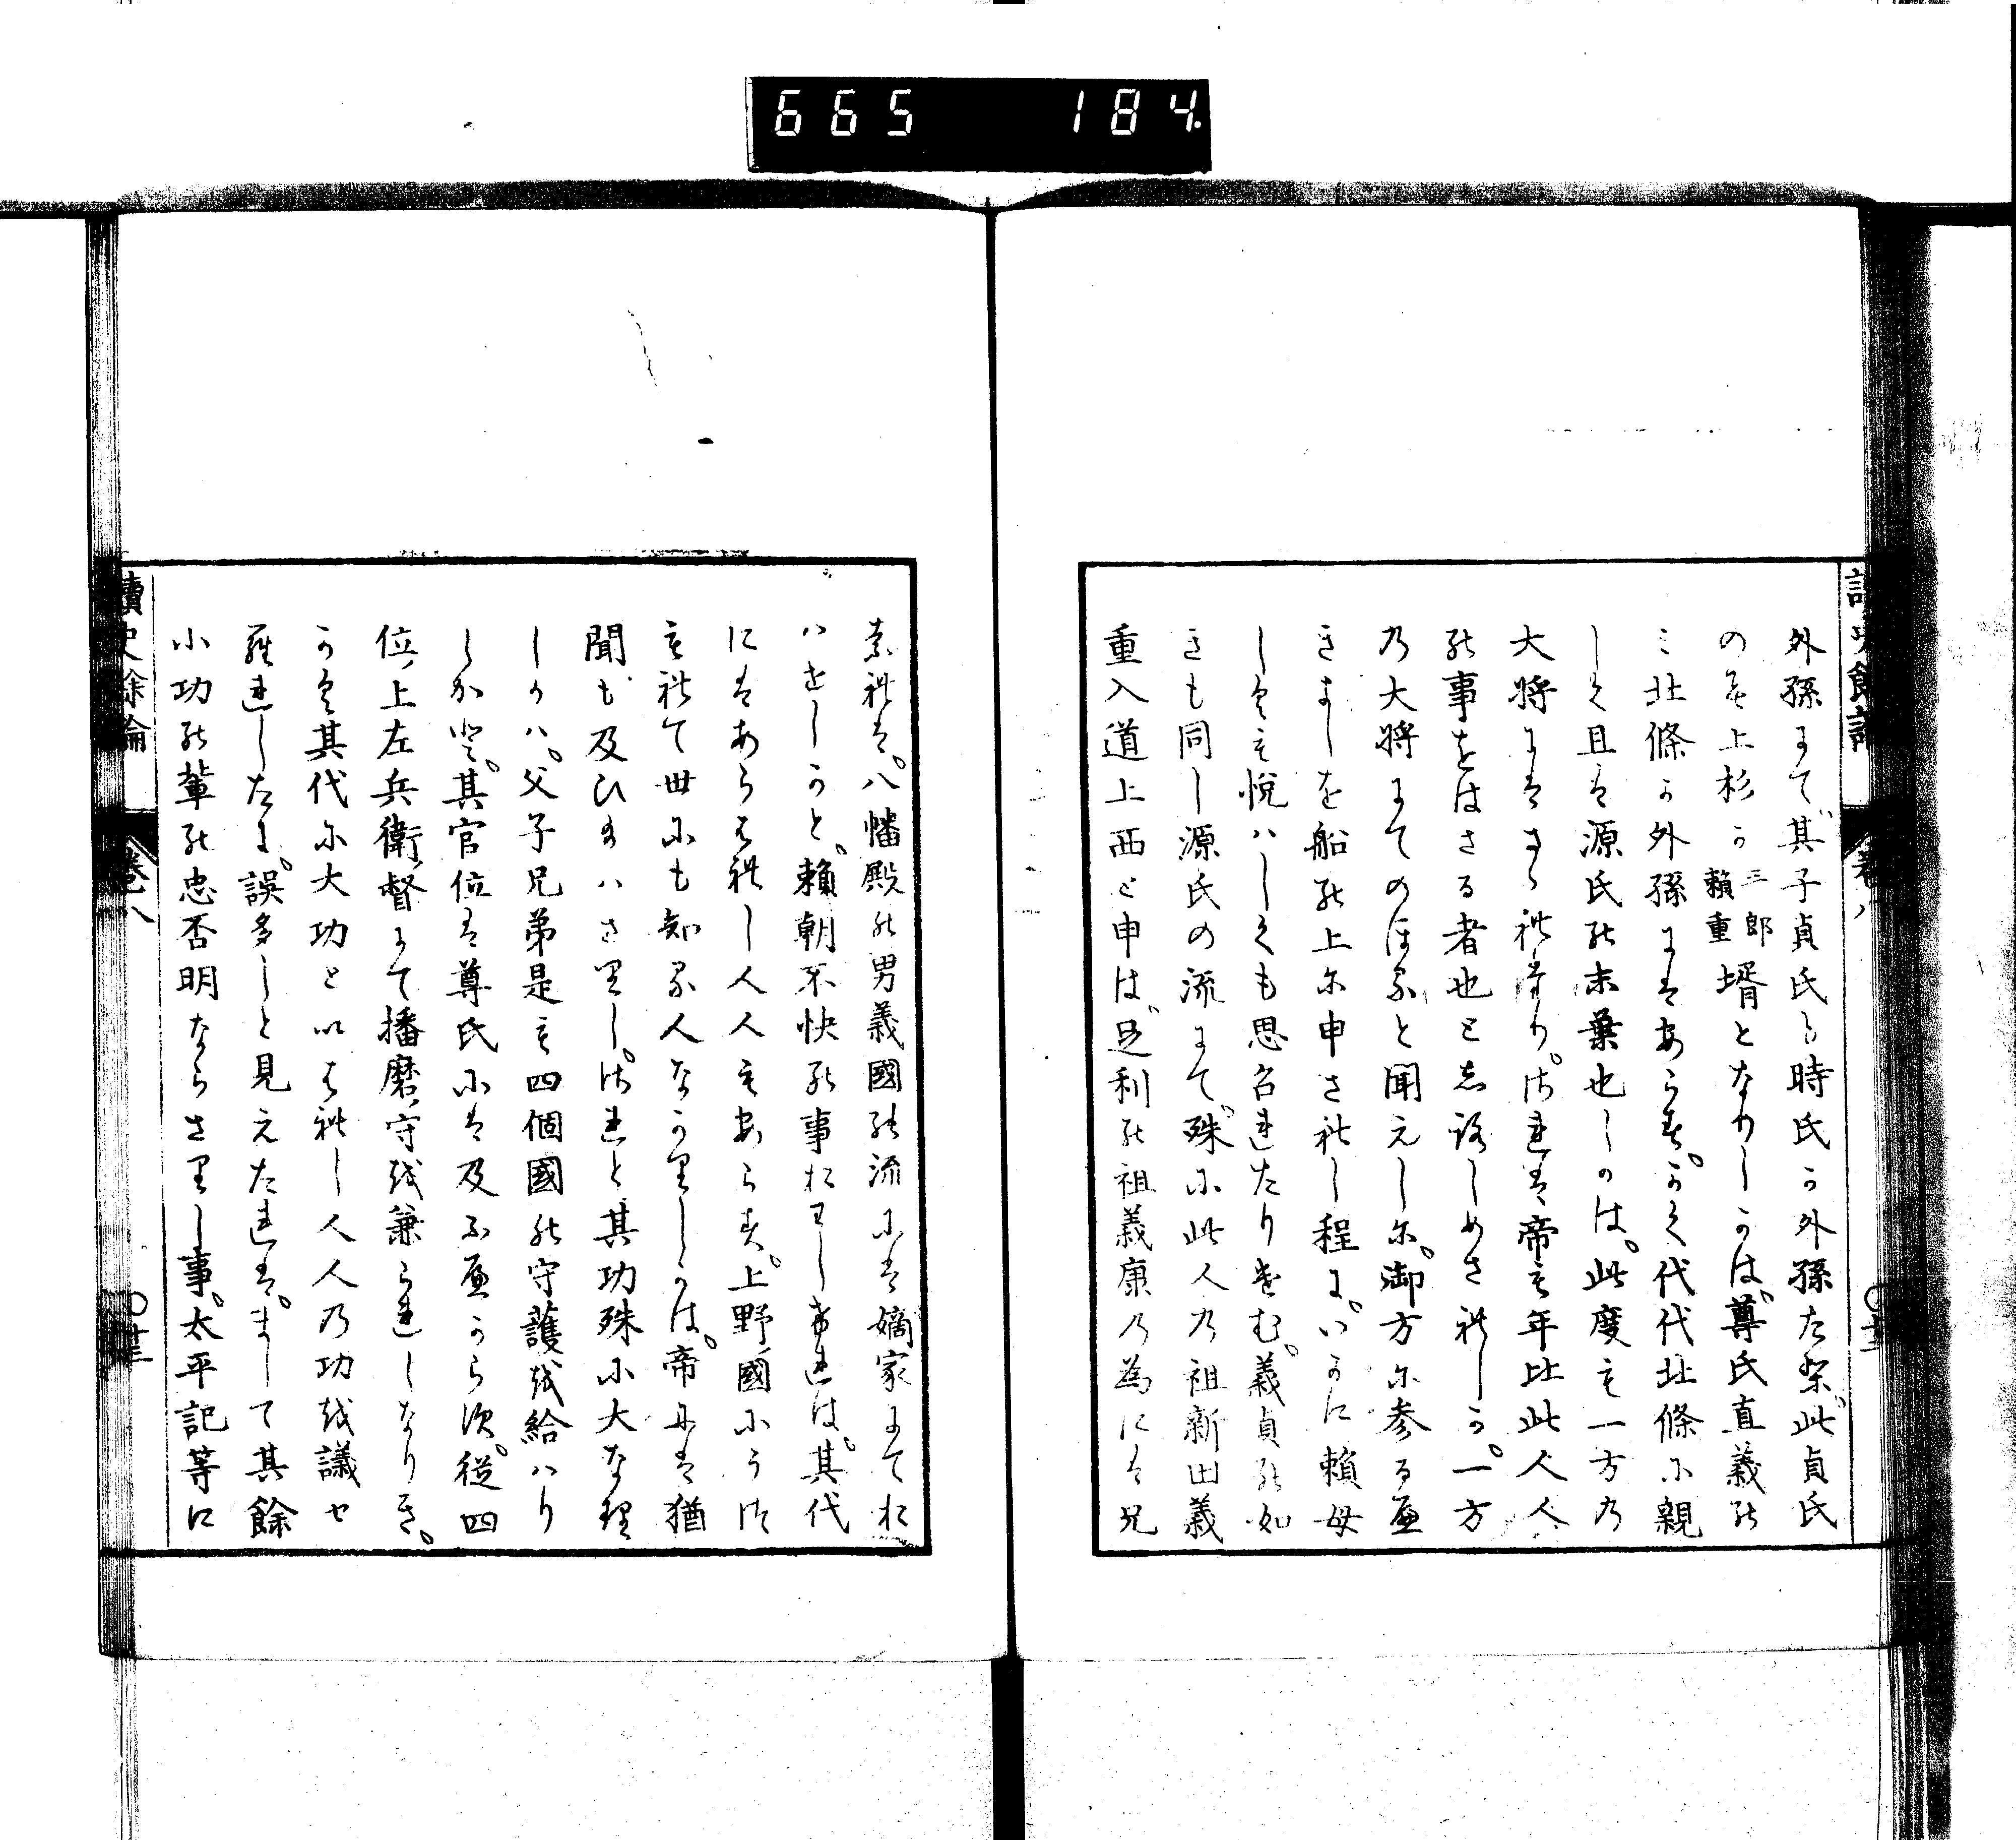 665 184
外孫にて其子貞氏も時氏か外孫たり此貞氏
のそ上杉か三郎頼重壻となりしかは尊氏直義の
ミ北條か外孫にはあらすかく代代北條に親
しく且は源氏の末葉也しかは此度も一方乃
大將にはせられけりされは帝も年比此人人
の事をはさる者也としろしめされしか一方
乃大將にてのほると聞えしに御方に参るへ
きよしを船の上に申されし程にいかに頼母
しくも悦ハしくも思召れたりけむ義貞の如
きも同し源氏の流にて殊に此人乃祖新田義
重入道上西と申は足利の祖義康乃為には兄
なれは八幡殿の男義國の流には嫡家にてお
ハせしかと頼朝不快の事おハしけれは其代
にはあらはれし人人もあらす上野國にうつ
もれて世にも知る人なかりしかは帝には猶
聞も及ひ給ハさりしされと其功殊に大なり
しかハ父子兄弟是も四個國の守護を給ハり
しかと其官位は尊氏には及ふへからす從四
位上左兵衛督にて播磨守を兼られしなりき
かく其代に大功といはれし人人乃功を議せ
られしたに誤多しと見えたれはまして其餘
小功の輩の忠否明ならさりし事太平記等に
讀史餘論
卷八